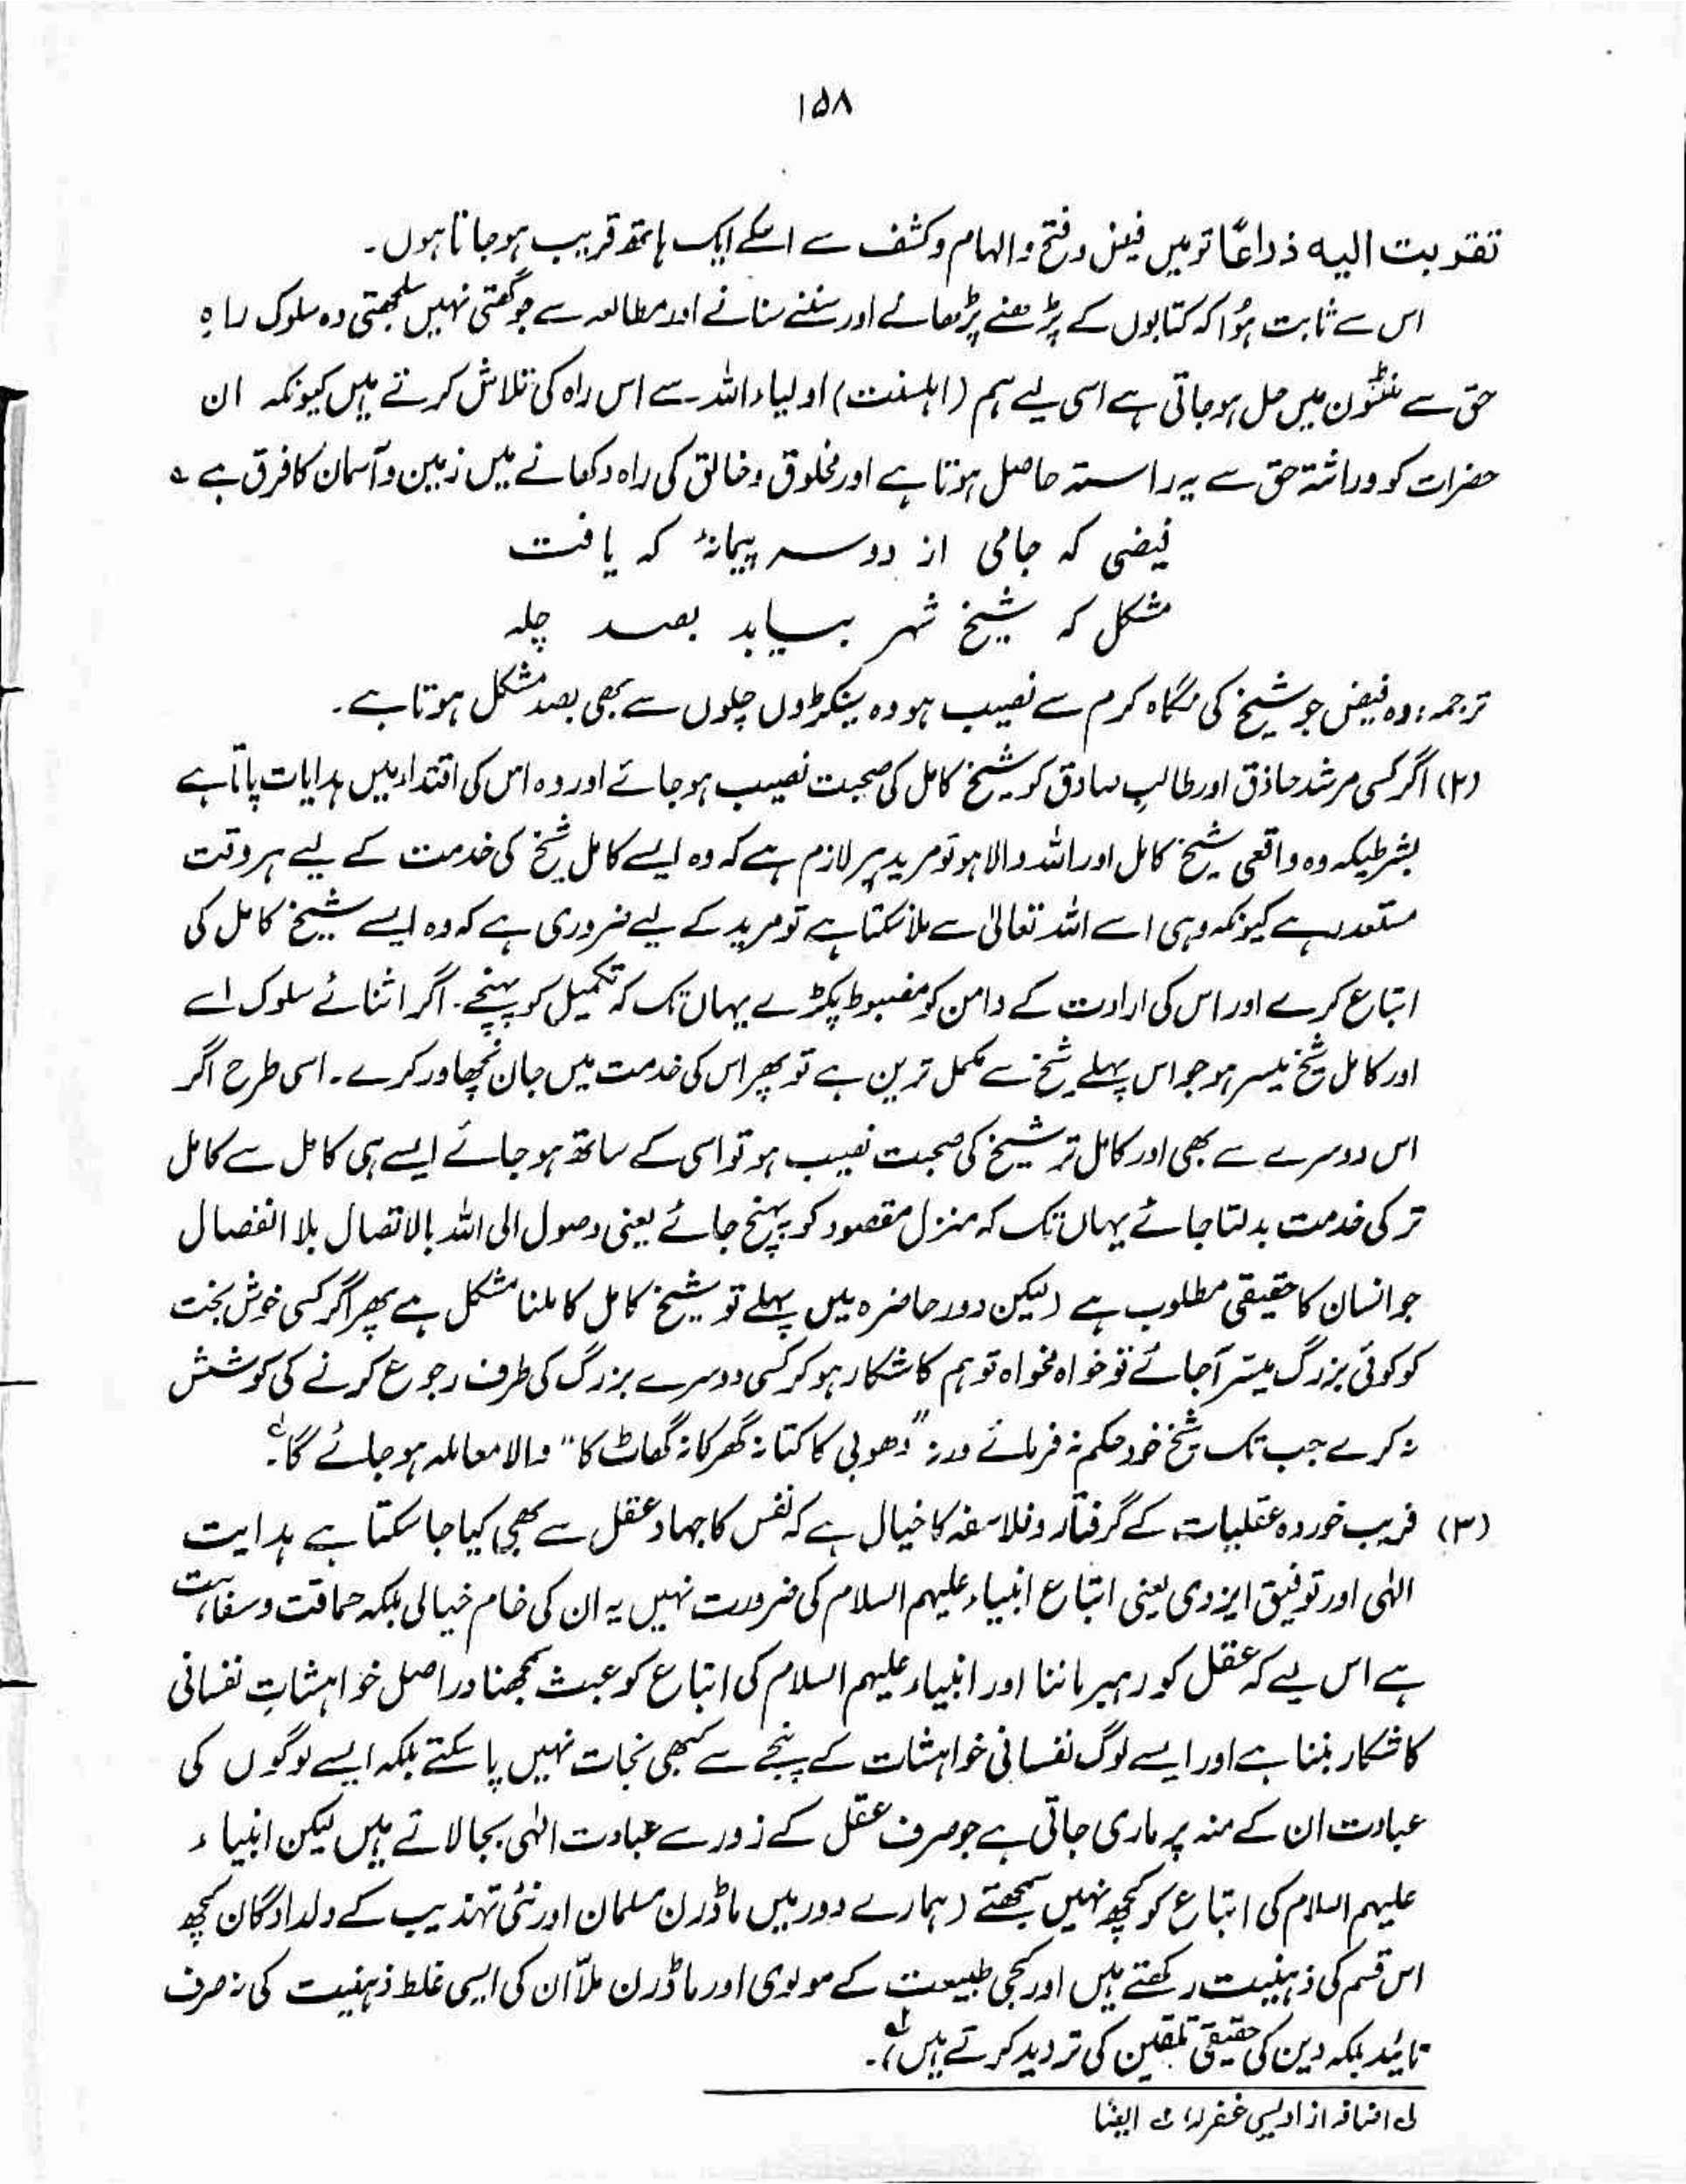 ۱۵۸
تقربت الیه ذراعًا تو میں فیض و فتح والہام و کشف سے اسکے ایک ہاتھ قریب ہو جاتا ہوں۔
اس سے ثابت ہُوا کہ کتابوں کے پڑھنے پڑھانے اور سننے سنانے اور مطالعہ سے جو گتھی نہیں سلجھتی وہ سلوک راہِ
حق سے منٹوں میں حل ہو جاتی ہے اسی لیے ہم (اہلسنت) اولیاء اللہ سے اس راہ کی تلاش کرتے ہیں کیونکہ ان
حضرات کو وراثتہ حق سے یہ راستہ حاصل ہوتا ہے اور مخلوق و خالق کی راہ دکھانے میں زمین و آسمان کا فرق ہے ؎
فیضی کہ جامی از دو سہ پیمانۂ کہ یافت
مشکل کہ شیخ شہر بیابد بصد چلہ
ترجمہ: وہ فیض جو شیخ کی نگاہ کرم سے نصیب ہو وہ سینکڑوں چلوں سے بھی بصد مشکل ہوتا ہے۔
(۲) اگر کسی مرشد حاذق اور طالبِ صادق کو شیخ کامل کی صحبت نصیب ہو جائے اور وہ اس کی اقتداء میں ہدایات پاتا ہے
بشرطیکہ وہ واقعی شیخ کامل اور اللہ والا ہو تو مرید پر لازم ہے کہ وہ ایسے کامل شیخ کی خدمت کے لیے ہر وقت
مستعد رہے کیونکہ وہی اسے اللہ تعالیٰ سے ملا سکتا ہے تو مرید کے لیے ضروری ہے کہ وہ ایسے شیخ کامل کی
اتباع کرے اور اس کی ارادت کے دامن کو مضبوط پکڑے یہاں تک کہ تکمیل کو پہنچے۔ اگر اثنائے سلوک اسے
اور کامل شیخ میسر ہو جو اس پہلے شیخ سے مکمل ترین ہے تو پھر اس کی خدمت میں جان نچھاور کرے۔ اسی طرح اگر
اس دوسرے سے بھی اور کامل تر شیخ کی صحبت نصیب ہو تو اسی کے ساتھ ہو جائے ایسے ہی کامل سے کامل
تر کی خدمت بدلتا جائے یہاں تک کہ منزل مقصود کو پہنچ جائے یعنی وصول الی اللہ بالاتصال بلا انفصال
جو انسان کا حقیقی مطلوب ہے (لیکن دور حاضرہ میں پہلے تو شیخ کامل کا ملنا مشکل ہے پھر اگر کسی خوش بخت
کو کوئی بزرگ میسّر آجائے تو خواہ مخواہ توہم کا شکار ہو کر کسی دوسرے بزرگ کی طرف رجوع کرنے کی کوشش
نہ کرے جب تک شیخ خود حکم نہ فرمائے ورنہ "دھوبی کا کتا نہ گھر کا نہ گھاٹ کا" والا معاملہ ہو جائے گا۔
(۳) فریب خوردہ عقلیات کے گرفتار و فلاسفہ کا خیال ہے کہ نفس کا جہاد عقل سے بھی کیا جا سکتا ہے ہدایت
الٰہی اور توفیق ایزدی یعنی اتباع انبیاء علیہم السلام کی ضرورت نہیں یہ ان کی خام خیالی بلکہ حماقت و سفاہت
ہے اس لیے کہ عقل کو رہبر ماننا اور انبیاء علیہم السلام کی اتباع کو عبث سمجھنا دراصل خواہشاتِ نفسانی
کا شکار بننا ہے اور ایسے لوگ نفسانی خواہشات کے پنجے سے کبھی نجات نہیں پا سکتے بلکہ ایسے لوگوں کی
عبادت ان کے منہ پر ماری جاتی ہے جو صرف عقل کے زور سے عبادت الٰہی بجا لاتے ہیں لیکن انبیاء
علیہم السلام کی اتباع کو کچھ نہیں سمجھتے (ہمارے دور میں ماڈرن مسلمان اور نئی تہذیب کے دلدادگان کچھ
اس قسم کی ذہنیت رکھتے ہیں اور کجی طبیعت کے مولوی اور ماڈرن ملّا ان کی ایسی غلط ذہنیت کی نہ صرف
تائید بلکہ دین کی حقیقی تلقین کی تردید کرتے ہیں)۔
لے اضافہ از اویسی غفرلہٗ ایضًا